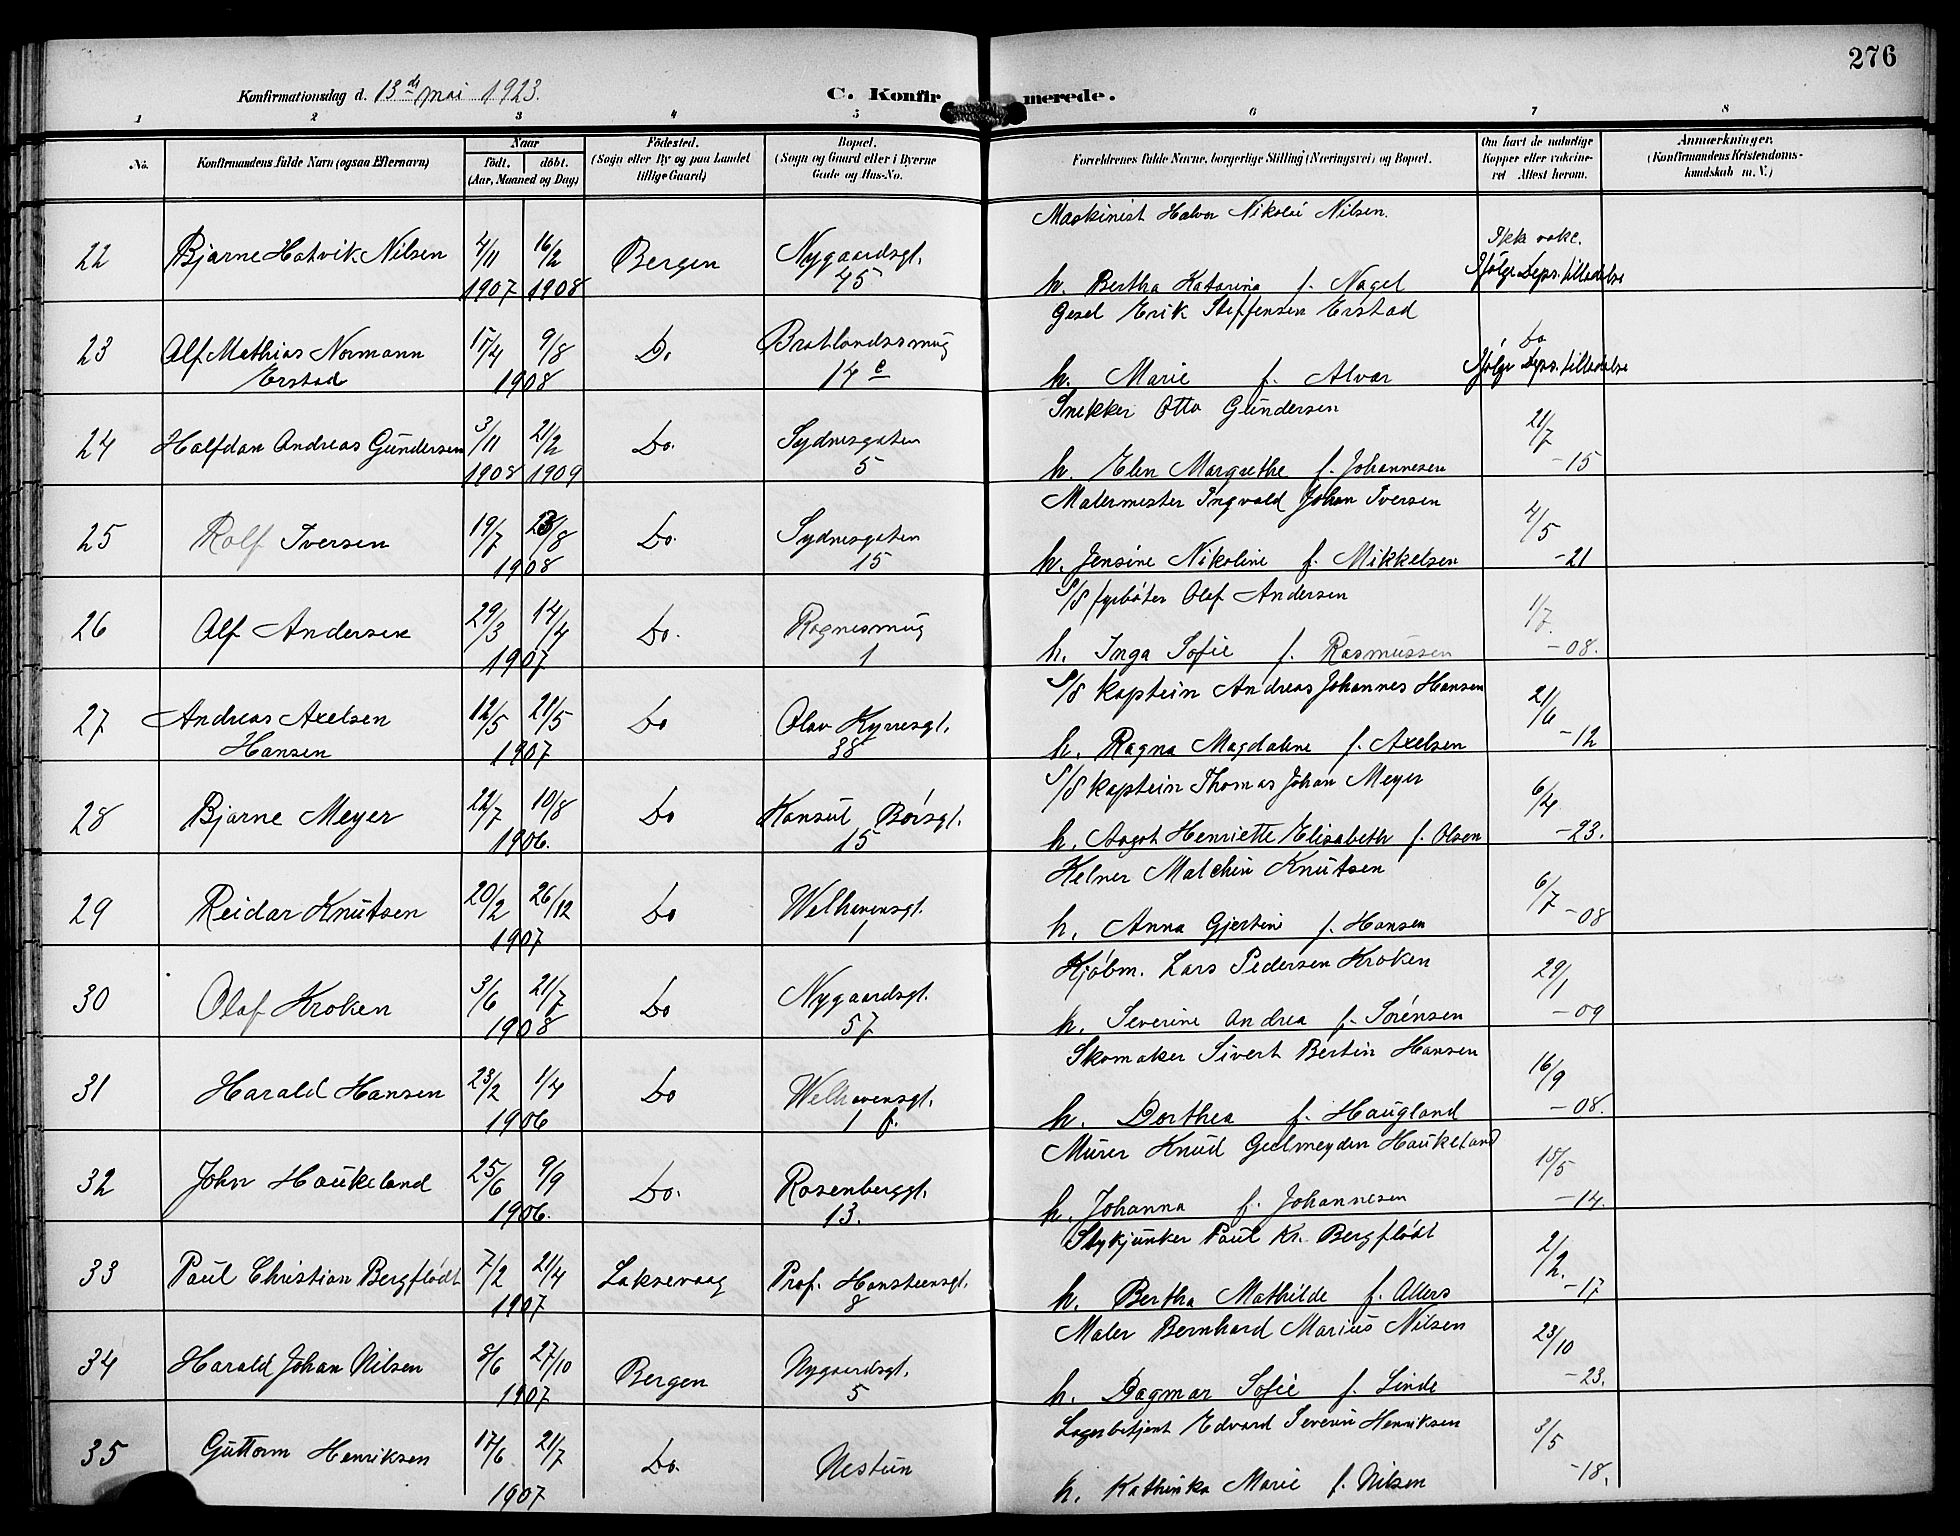 276
Konfirmationsdag d. 13de mai 1923.
C. Konfirmerede.
1 2 3 4 5 6 7 8
No. Konfirmandens fulde Navn (ogsaa Efternavn) Naar født. døbt. (Aar, Maaned og Dag) Fødested. (Sogn eller By og paa Landet tillige Gaard) Bopæl. (Sogn og Gaard eller i Byerne Gade og Hus-No. Forældrenes fulde Navne, borgerlige Stilling (Næringsvei) og Bopæl. Om havt de naturlige Kopper eller vaccineret Attest herom. Anmærkninger. (Konfirmandens Kristendomskundskab m. V.)
Maskinist Halvor Nikolai Nilsen.
22 Bjarne Hatvik Nilsen 4/11 1907 16/2 1908 Bergen Nygaardsgt. 45 Ikke vakc. Ifølge Deps. tilladelse
h. Bertha Katarina f. Nagel
Gesel Erik Steffensen Erstad
23 Alf Mathias Normann Erstad 15/4 9/8 1908 Do Bratlandssmug 14 c Do Ifølge Deps. tilladelse
h. Marie f. Alvær
Snekker Otto Gundersen
24 Halfdan Andreas Gundersen 3/11 1908 21/2 1909 Do. Sydnesgaten 5 21/7 -15
h. Elen Margrethe f. Johannesen
Malermester Ingvald Johan Iversen
25 Rolf Iversen 19/7 23/8 1908 Do. Sydnesgaten 15 4/5 -21
h. Jensine Nikoline f. Mikkelsen
S/S fyrbøter Olaf Andersen
26 Alf Andersen 29/3 14/4 1907 Do. Rognesmug 1 1/7. -08.
h. Inga Sofie f. Rasmussen
S/S kaptein Andreas Johannes Hansen
27 Andreas Axelsen Hansen 12/5 21/5 1907 Do Olav Kyrresgt. 38 21/6 -12
h. Ragna Magdalene f. Axelsen
S/S kaptein Thomas Johan Meyer
28 Bjarne Meyer 22/7 10/8 1906. Do Konsul Børsgt. 15 6/4 -23.
h. Aagot Henriette Elisabeth f. Olsen
Kelner Malchin Knutsen
29 Reidar Knutsen 20/2 26/12 1907 Do Welhavensgt. 1 6/7 -08
h. Anna Gjertine f. Hansen
Kjøbm. Lars Pedersen Kroken
30 Olaf Kroken 3/6 21/7 1908 Do Nygaardsgt. 57 29/1 -09
h. Severine Andrea f. Sørensen
Skomaker Sivert Bertin Hansen
31 Harald Hansen 23/2 1/4 1906 Do Welhavensgt. 1 f. 16/9 -08.
h. Dorthea f. Haugland
Murer Knud Geelmeyden Haukeland
32 John Haukeland 25/6 9/9 1906. Do. Rosenberggt. 13. 15/5 -14.
h. Johanna f. Johannesen
Stykjunker Paul Kr. Bergflødt
33 Paul Christian Bergflødt 7/2 21/4 1907 Laksevaag Prof. Hansteensgt. 8 2/2. -17
h. Bertha Mathilde f. Allers
Maler Bernhard Marius Nilsen
34 Harald Johan Nilsen 8/6 27/10 1907 Bergen Nygaardsgt. 5 23/10 -23.
h. Dagmar Sofie f. Linde
Lagerbetjent Edvard Severin Henriksen
35 Guttorm Henriksen 17/6 21/7 1907 Do. Nestun 3/5 -18.
h. Kathinka Marie f. Nilsen